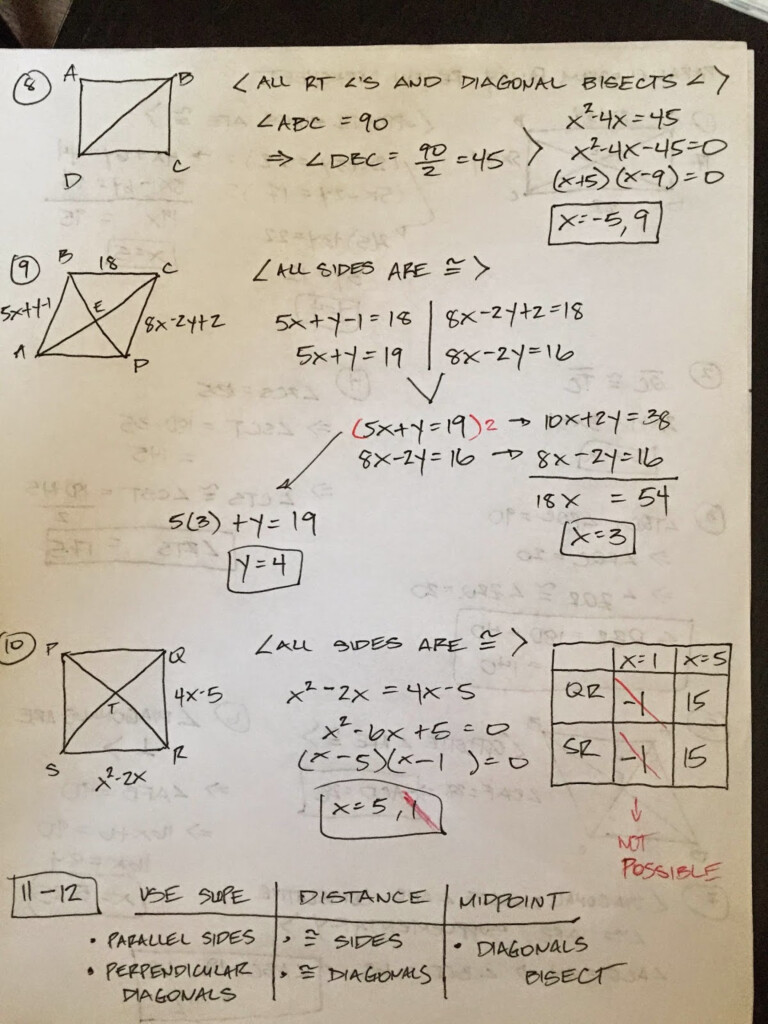 8
A B
D C
< ALL RT ∠'S AND DIAGONAL BISECTS ∠ >
∠ABC = 90
⇒ ∠DBC = 90/2 = 45
x²-4x = 45
x²-4x-45=0
(x+5)(x-9) = 0
x=-5, 9
9
B 18 C
5x+y-1
E
8x-2y+2
A D
< ALL SIDES ARE ≅ >
5x+y-1 = 18 | 8x-2y+2=18
5x+y = 19 | 8x-2y=16
(5x+y=19)2 → 10x+2y=38
8x-2y=16 → 8x-2y=16
18x = 54
x=3
5(3) + y = 19
y=4
10
P Q
T
4x-5
S R
x²-2x
< ALL SIDES ARE ≅ >
x²-2x = 4x-5
x²-6x+5 = 0
(x-5)(x-1) = 0
x=5, 1
x=1 x=5
QR -1 15
SR -1 15
↓
NOT
POSSIBLE
11-12
USE SLOPE | DISTANCE | MIDPOINT
• PARALLEL SIDES | • ≅ SIDES | • DIAGONALS
• PERPENDICULAR | • ≅ DIAGONALS | BISECT
DIAGONALS